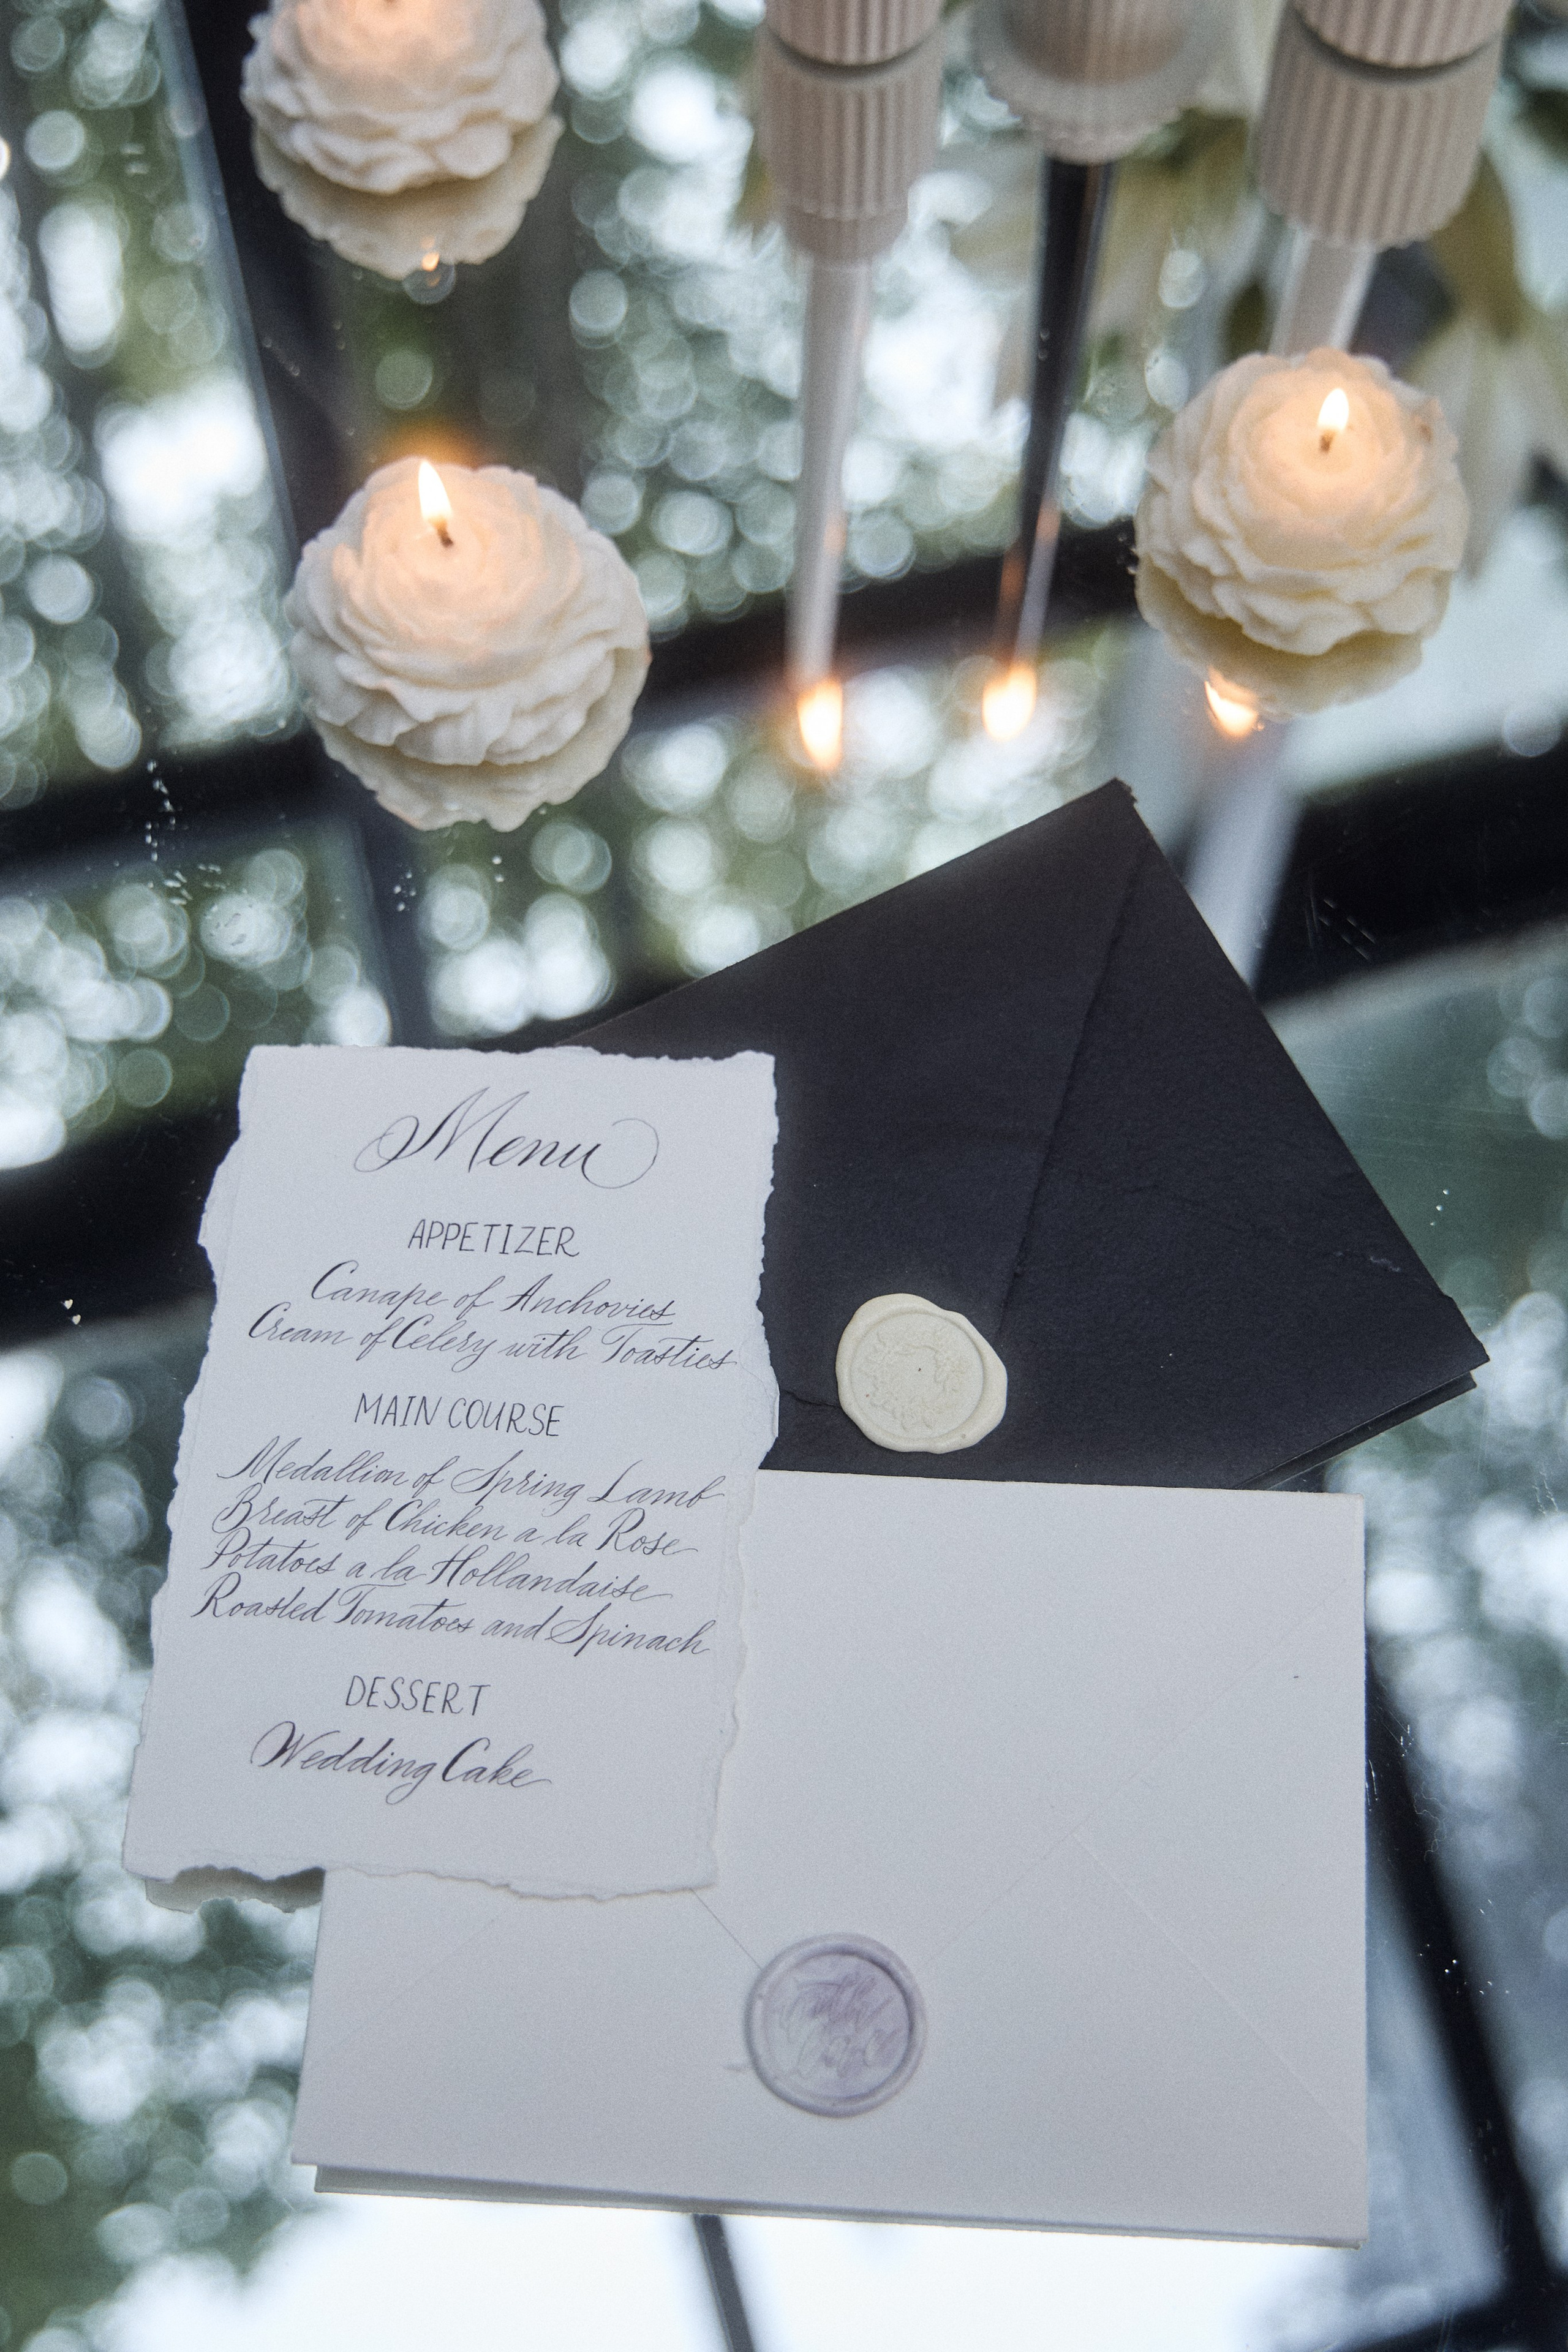 Menu
APPETIZER
Canape of Anchovies
Cream of Celery with Toasties
MAIN COURSE
Medallion of Spring Lamb
Breast of Chicken a la Rose
Potatoes a la Hollandaise
Roasted Tomatoes and Spinach
DESSERT
Wedding Cake